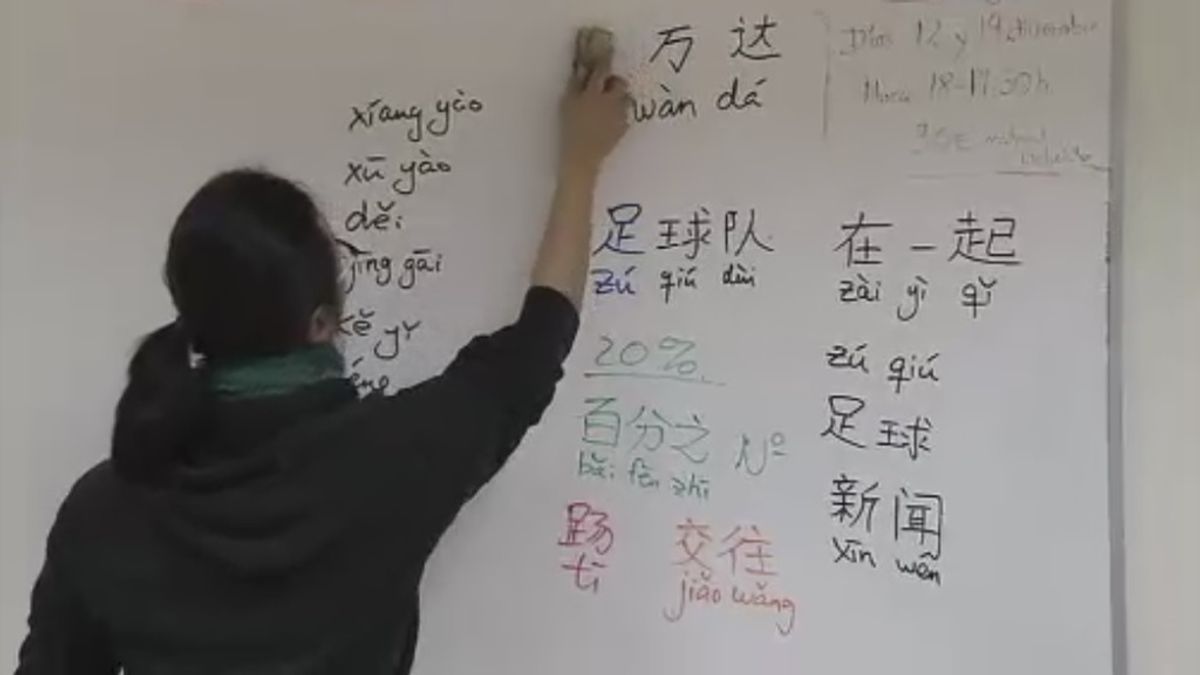 xiang yào
xū yào
děi
yīng gāi
kě yǐ
万达
wàn dá
Días 12 y 19
Hora 18-19:30h
足球队
zú qiú duì
20%
百分之 Nº
bǎi fēn zhī
踢
tī
交往
jiāo wǎng
在一起
zài yì qǐ
zú qiú
足球
新闻
xīn wén